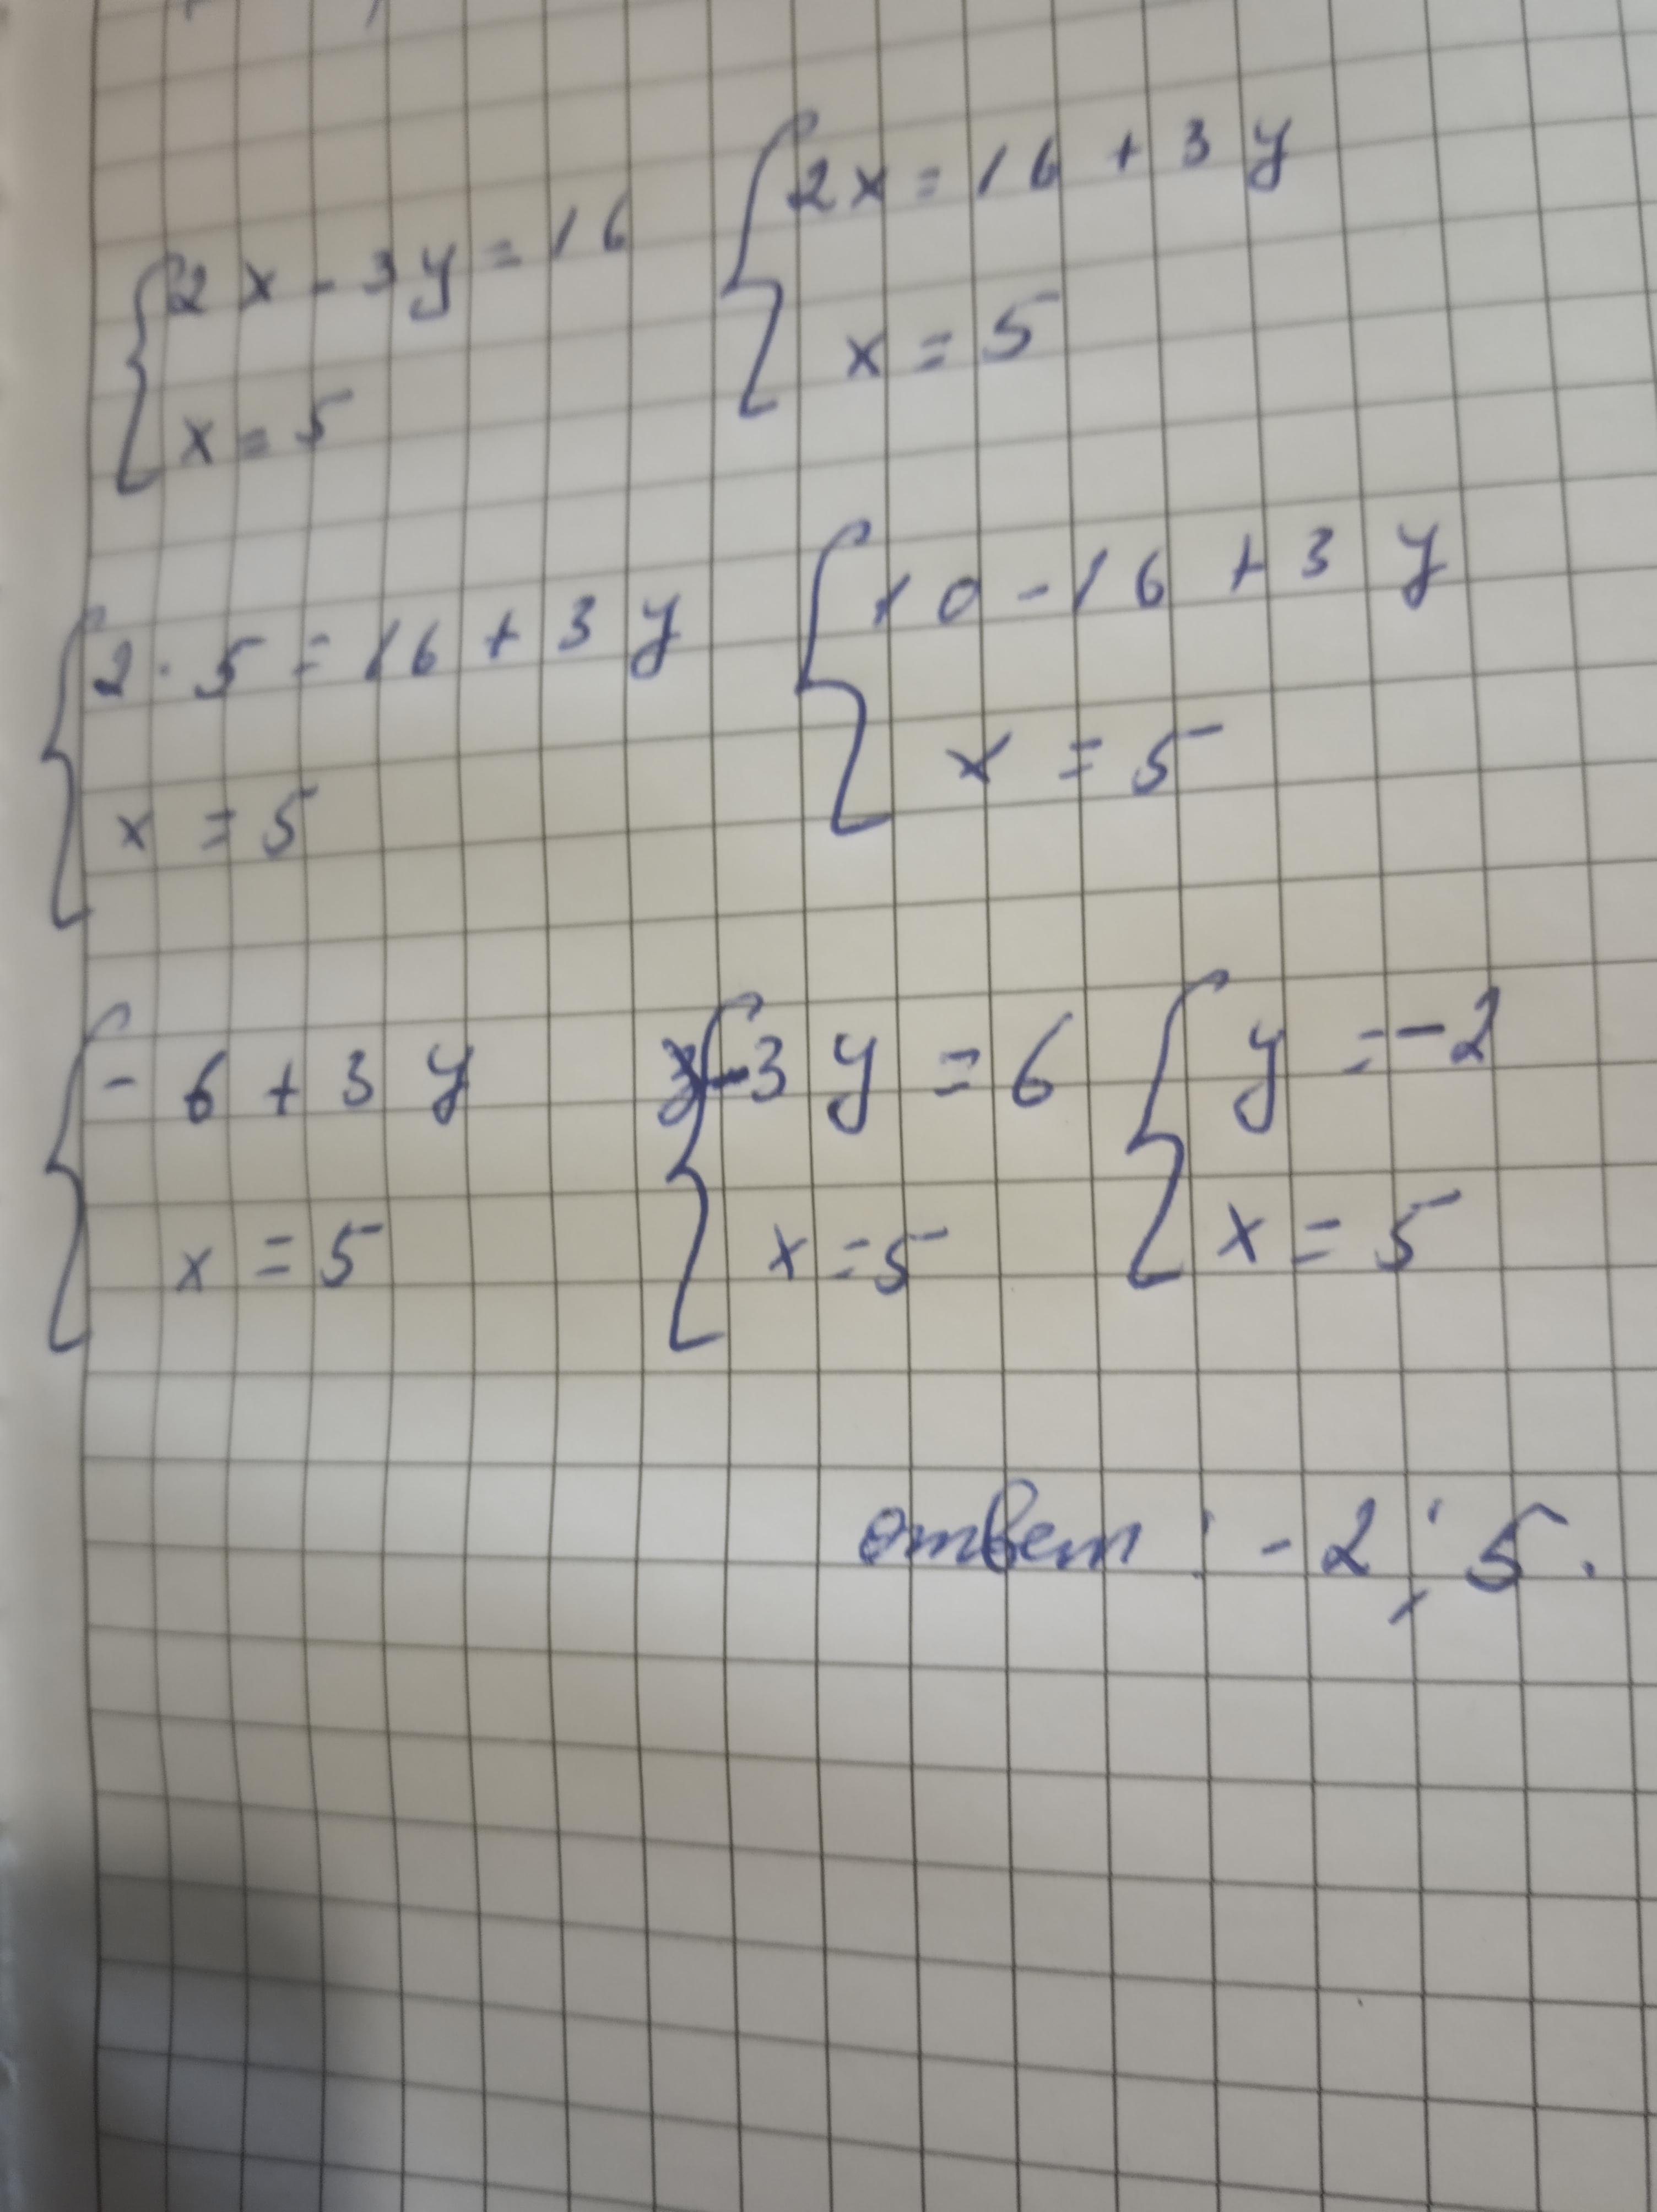 2x - 3y = 16
x = 5
2x = 16 + 3y
x = 5
2 · 5 = 16 + 3y
x = 5
10 - 16 + 3y
x = 5
- 6 + 3y
x = 5
-3y = 6
x = 5
y = -2
x = 5
ответ: -2; 5.